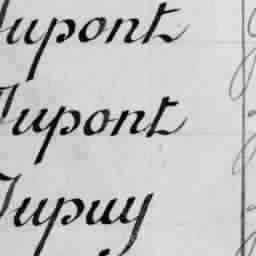 Dupont
Dupont
Dupuy